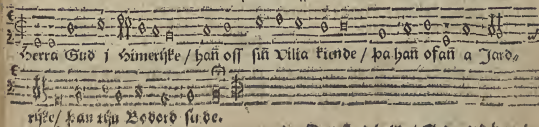 Herra Gud j Himerijke / hañ oss siñ vilia kiende / þa hañ ofañ a Jard-
rijke / þan tiju Boðord sende.